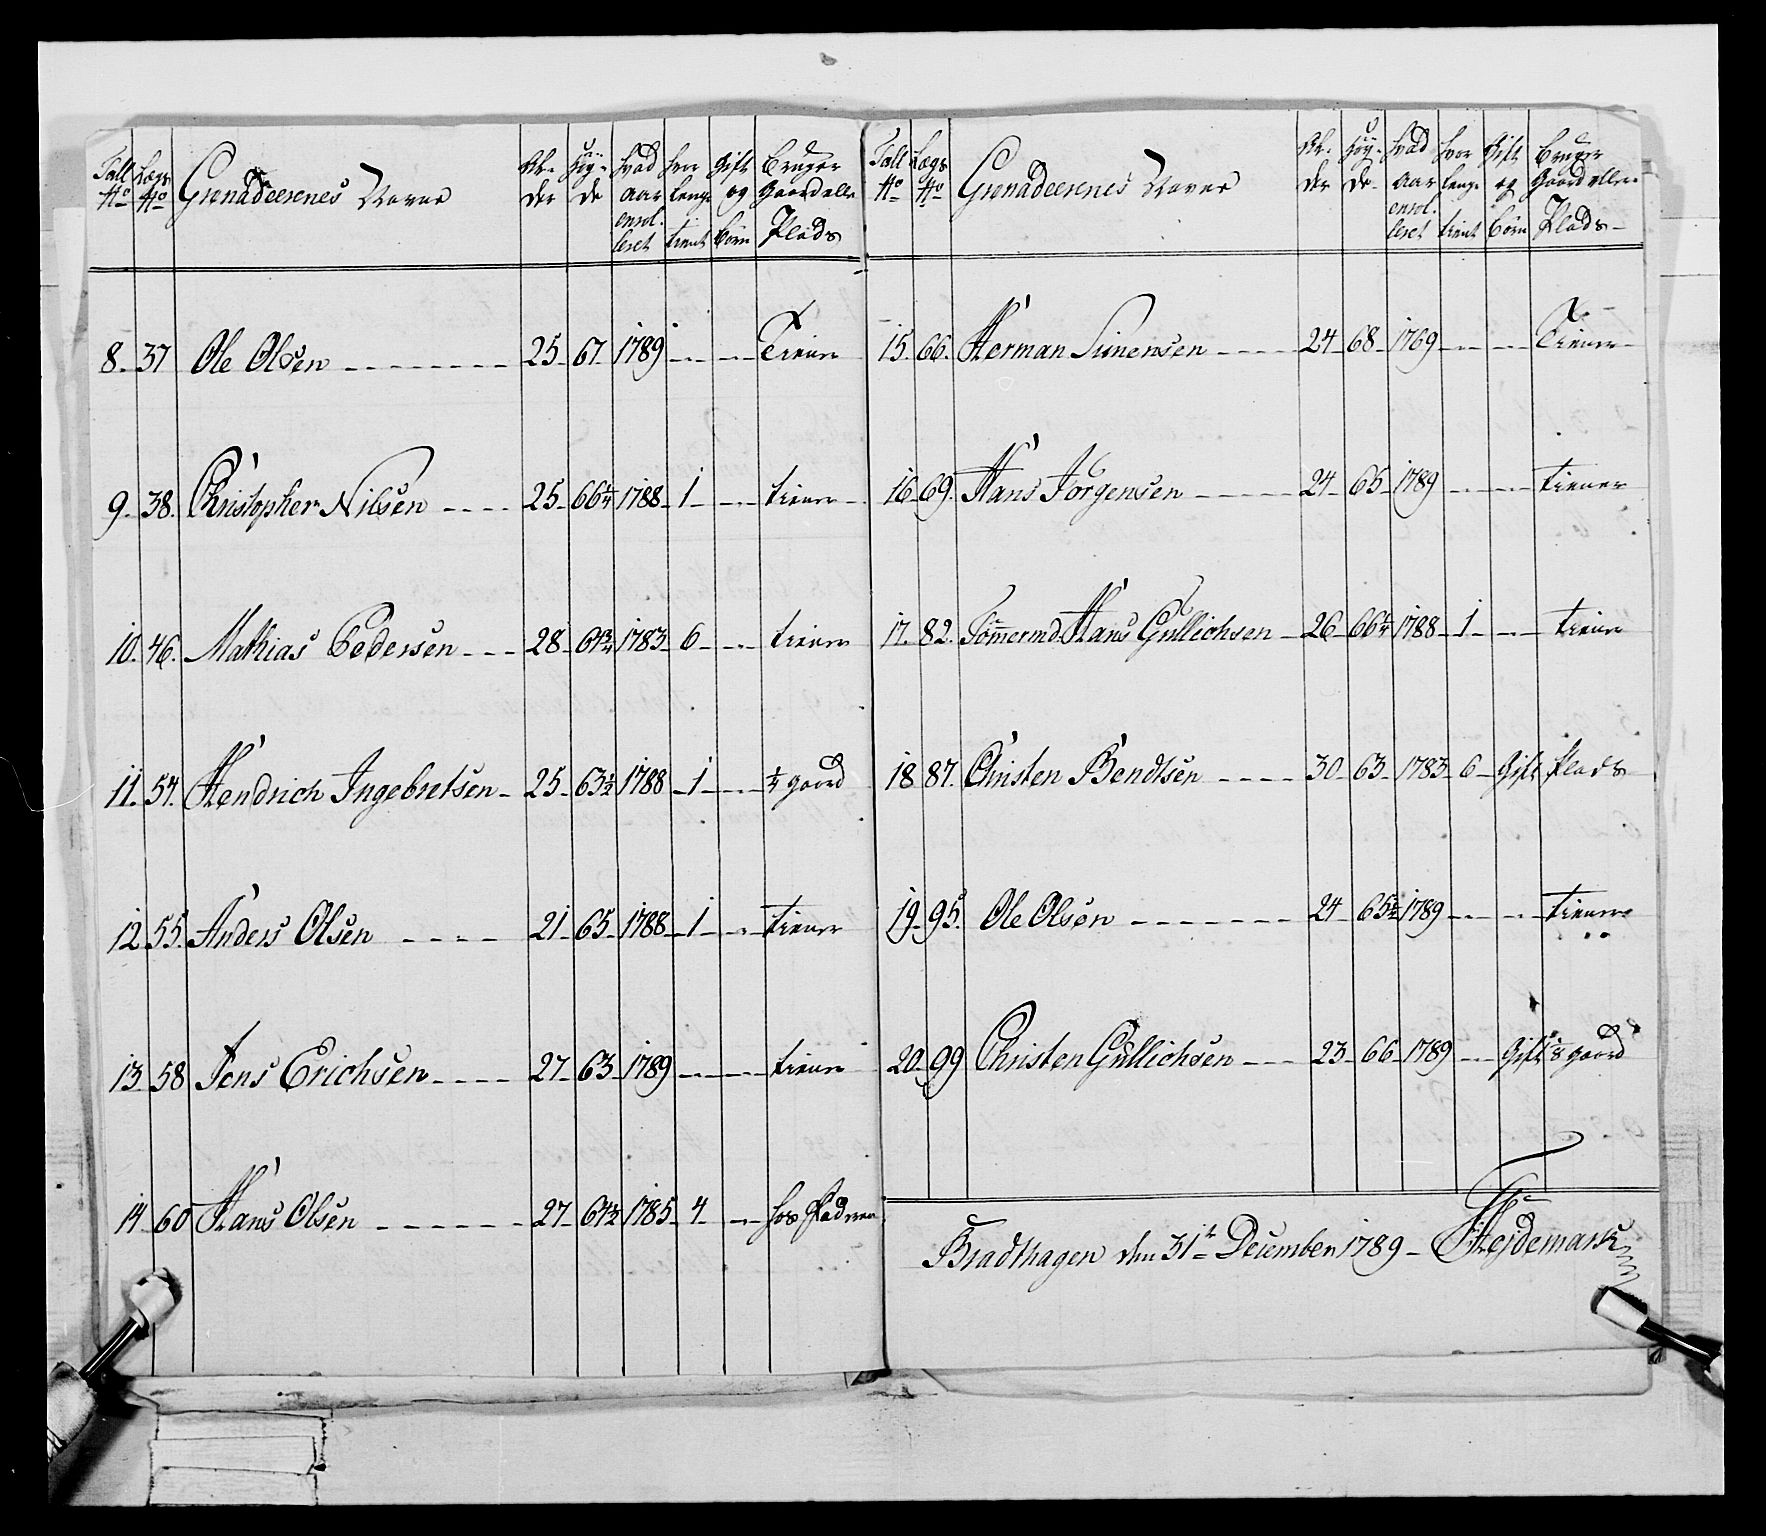 Tall No | Lægs No | Grenadeerenes Navne | Al-der | Høy-de | Hvad aar enrol-leret | hvor lenge tient | Gift og börn | Bruger Gaard eller Plads
8 | 37 | Ole Olsen | 25 | 67 | 1789 | | | Tiener
9 | 38 | Christopher Nilsen | 25 | 66 1/4 | 1788 | 1 | | tiener
10 | 46 | Mathias Pedersen | 28 | 64 3/4 | 1783 | 6 | | tiener
11 | 54 | Hendrich Ingebretsen | 25 | 63 1/2 | 1788 | 1 | | 1/4 gaard
12 | 55 | Anders Olsen | 21 | 65 | 1788 | 1 | | tiener
13 | 58 | Jens Erichsen | 27 | 63 | 1789 | | | tiener
14 | 60 | Hans Olsen | 27 | 64 1/2 | 1785 | 4 | | hos Fadren
Tall No | Lægs No | Grenadeerenes Navne | Al-der | Høy-de | Hvad aar enrol-leret | hvor lenge tient | Gift og börn | Bruger Gaard eller Plads
15 | 66 | Herman Simensen | 24 | 68 | 1769 | | | Tiener
16 | 69 | Hans Jörgensen | 24 | 65 | 1789 | | | tiener
17 | 82 | Tömermd. Hans Gullichsen | 26 | 66 1/4 | 1788 | 1 | | tiener
18 | 87 | Christen Bendtsen | 30 | 63 | 1783 | 6 | Gift | Plads
19 | 95 | Ole Olsen | 24 | 65 1/2 | 1789 | | | tiener
20 | 99 | Christen Gullichsen | 23 | 66 | 1789 | | Gift | 1/8 gaard
Bradthagen den 31te December 1789 Heydemark